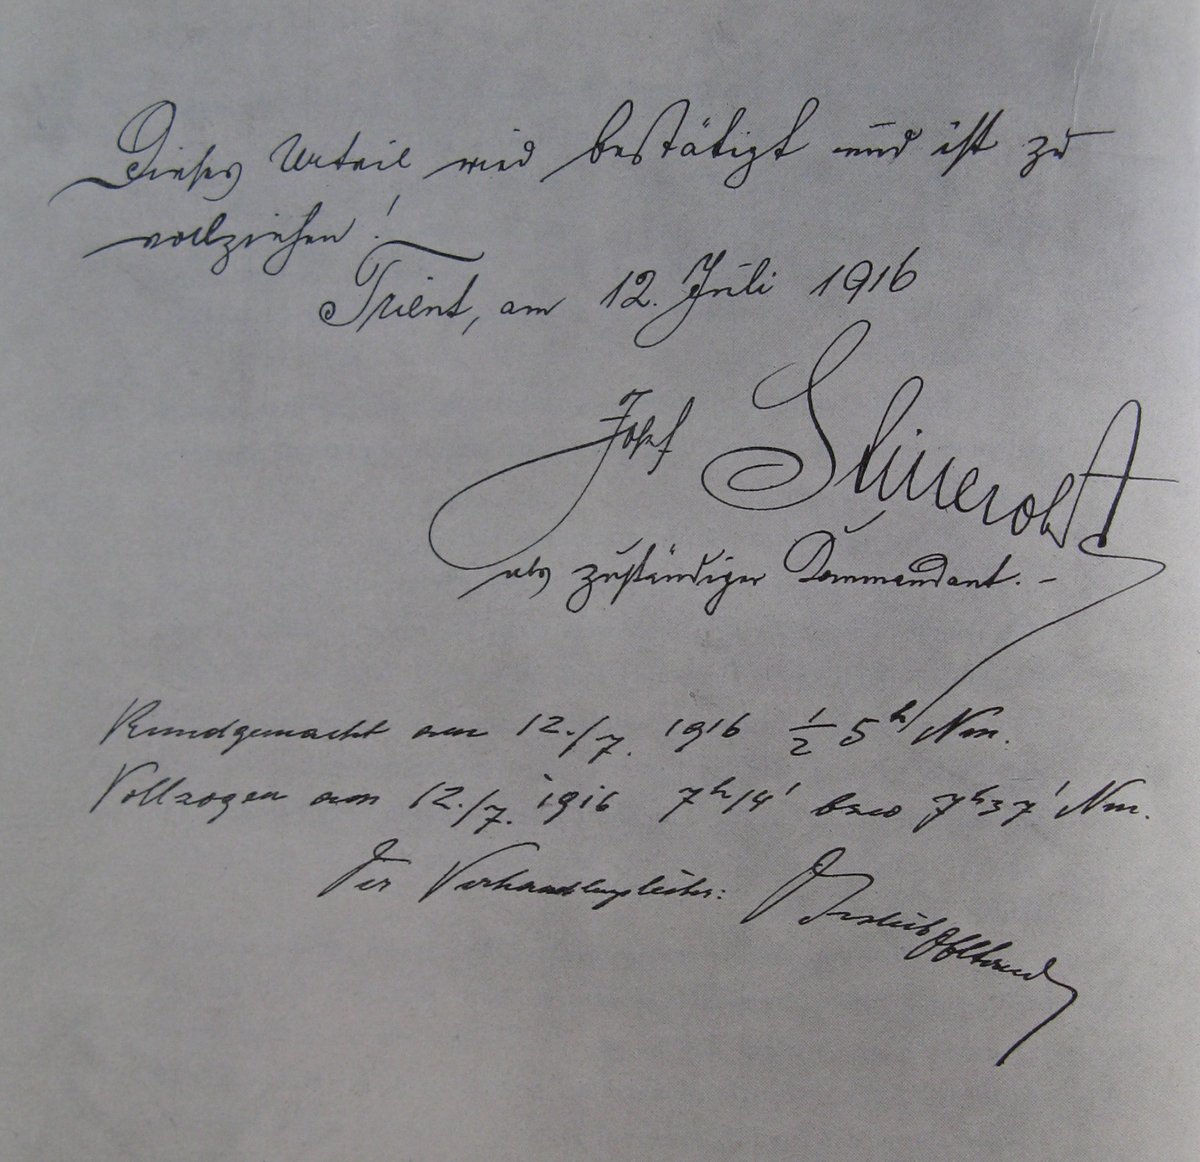 Dieses Urteil wird bestätigt und ist zu
vollziehen!
Trient, am 12. Juli 1916
Josef
als zuständiger Kommandant. –
Kundgemacht am 12./7. 1916 ½ 5h Nm.
Vollzogen am 12./7. 1916 7h14' bzw 7h37' Nm.
Der Verhandlungsleiter: